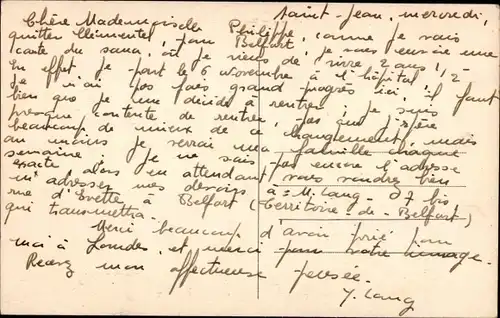 Saint-Jean, mercredi,
Chère Mademoiselle Philippe, comme je vais
quitter pour Belfort, je vous envoie une
carte du sana, où je viens de vivre 2 ans 1/2-
En effet je part le 6 novembre à l'hôpital
Je n'ai pas fais grand progrès ici; il faut
bien que je me décide à rentrer; je suis
presque contente de rentrer, pas que j'espère
beaucoup de mieux de ce changement, mais
au moins je verrai ma famille chaque
semaine. Je ne sais pas encore l'adresse
exacte alors en attendant vous voudrez bien
m'adresser mes devoirs à: M. Lang 37 bis
rue d'Evette à Belfort (Territoire-de-Belfort)
qui transmettra.
Merci beaucoup d'avoir prié pour
moi à Lourdes, et merci pour votre image.
Recevez mon affectueuse pensée.
Y. Lang